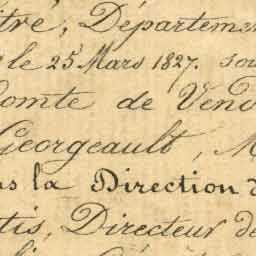 itré, Départemen
le 25 Mars 1827. sou
Comte de Vend
Georgeault, M
ns la Direction d
tis, Directeur de